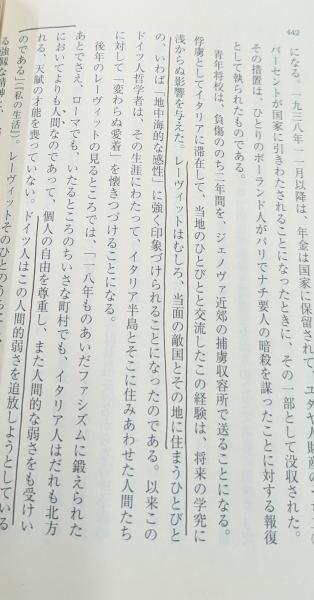 442
になる。一九三八年一月以降は、年金は国家に保留されて、ユダヤ人財産の
パーセントが国家に引きわたされることになったときに、その一部として没収された。
その措置は、ひとりのポーランド人がパリでナチ要人の暗殺を謀ったことに対する報復
として執られたものである。
青年将校は、負傷ののち二年間を、ジェノヴァ近郊の捕虜収容所で送ることになる。
俘虜としてイタリアに滞在して、当地のひとびとと交流したこの経験は、将来の学究に
浅からぬ影響を与えた。レーヴィットはむしろ、当面の敵国とその地に住まうひとびと
の、いわば「地中海的な感性」に強く印象づけられることになったのである。以来この
ドイツ人哲学者は、その生涯にわたって、イタリア半島とそこに住みあわせた人間たち
に対して「変わらぬ愛着」を懐きつづけることになる。
後年のレーヴィットの見るところでは、「一八年ものあいだファシズムに鍛えられた
あとでさえ、ローマでも、いたるところのちいさな町村でも、イタリア人はだれも北方
においてよりも人間なのであって、個人の自由を尊重し、また人間的な弱さをも受けい
れる、天賦の才能を喪っていない。ドイツ人はこの人間的弱さを追放しようとしている
のである」(「私の生活」)。レーヴィットそのひとのうちに
る強靭な精神に